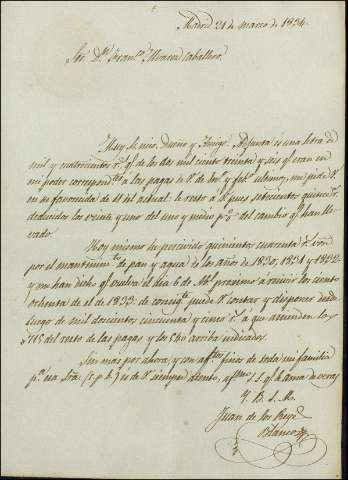 Madrid 21 de marzo de 1834.
Sor. Dn. Franco. Alvarez Caballero.
Muy Sr. mio, Dueño y Amigo: Adjunta es una letra de
mil y cuatrocientos rs. qe. de los dos mil ciento treinta y seis qe. eran en
mi poder correspondtes. á las pagas de Vd. de y febo. ultimos, me pide Vd.
en su favorecida de 11 del actual: le resto á Vd. pues setecientos quince rs.
deducidos los veinte y uno del uno y medio p% del cambio qe. han lle-
vado.
Hoy mismo he percivido quinientos cuarenta rs. von.
por el mantenimto. de pan y agua de los años de 1830, 1831 y 1832.
y me han dicho qe. vuelva el dia 6 de Ab. proximo á recivir los ciento
ochenta de el de 1833: de consigte. puede Vd. contar y disponer desde
luego de mil doscientos cincuenta y cinco rs. á que ascienden los
715 del resto de las pagas y los 540 arriba indicados.
Sin mas por ahora, y con aftos. finos de toda mi familia
pa. esa Sra. (c. p. b.) es de Vd. siempre atento, affmo. s. s. qe. le ama de veras
Y. B. S. M.
Juan de los Reyes
Blanco